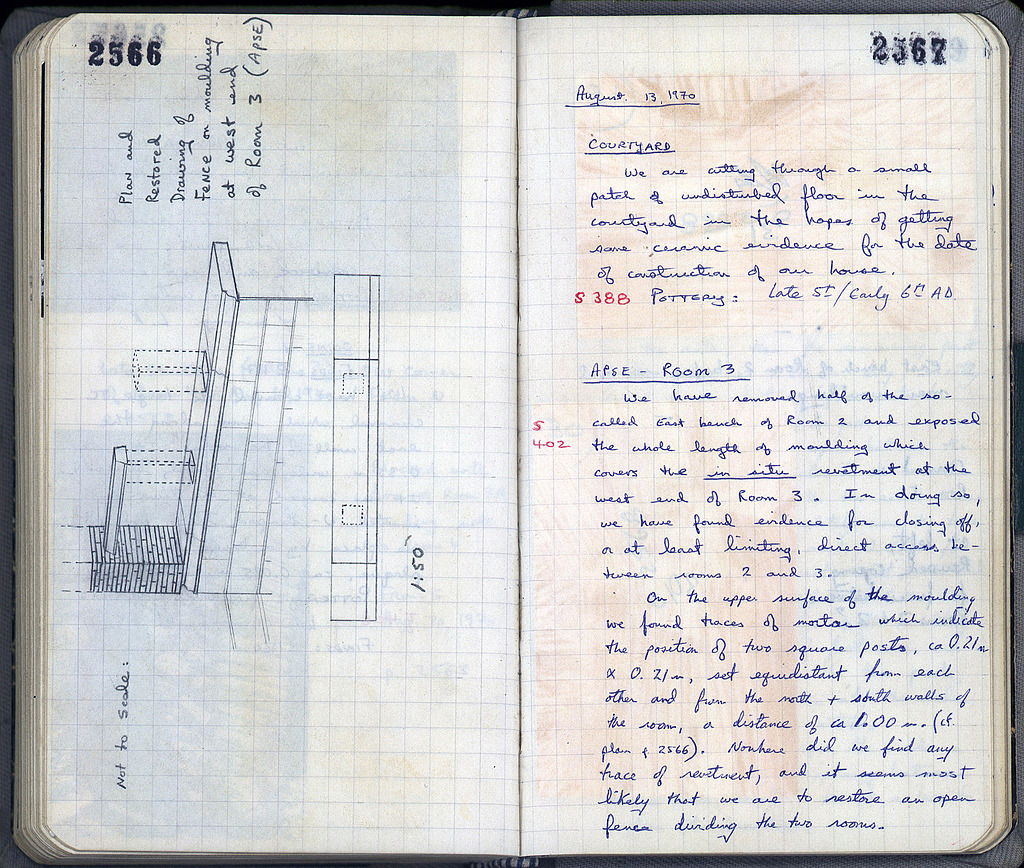 2566
Plan and
Restored
Drawing of
Fence on moulding
at west end
of Room 3 (Apse)
1:50
Not to Scale:
2567
August 13, 1970
COURTYARD
We are cutting through a small
patch of undisturbed floor in the
courtyard in the hopes of getting
some ceramic evidence for the date
of construction of our house.
S 388 POTTERY: Late 5th/Early 6th AD.
APSE - ROOM 3
We have removed half of the so-
S 402
called East bench of Room 2 and exposed
the whole length of moulding which
covers the in situ revetment at the
west end of Room 3. In doing so,
we have found evidence for closing off,
or at least limiting, direct access be-
tween rooms 2 and 3.
On the upper surface of the moulding
we found traces of mortar which indicate
the position of two square posts, ca 0.21 m
x 0.21 m, set equidistant from each
other and from the north + south walls of
the room, a distance of ca 1.00 m. (cf.
plan p. 2566). Nowhere did we find any
trace of revetment, and it seems most
likely that we are to restore an open
fence dividing the two rooms.